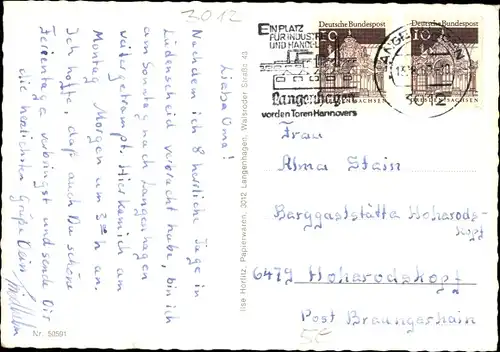 3012
Liebe Oma!
Nachdem ich 8 herrliche Tage in
Lüdenscheid verbracht habe, bin ich
am Sonntag nach Langenhagen
weitergetrampt. Hier kam ich am
Montag Morgen um 3 h an.
Ich hoffe, daß auch Du schöne
Ferientage verbringst und sende Dir
die herzlichsten Grüße Dein
Nr. 50591
Ilse Horlitz, Papierwaren, 3012 Langenhagen, Walsroder Straße 43
EIN PLATZ
FÜR INDUSTRIE
UND HANDEL
Langenhagen
vor den Toren Hannovers
Deutsche Bundespost
Deutsche Bundespost
10
10
SACHSEN
Frau
Alma Stain
Berggaststätte Hoherods-
kopf
6479 Hoherodskopf
Post Breungeshain